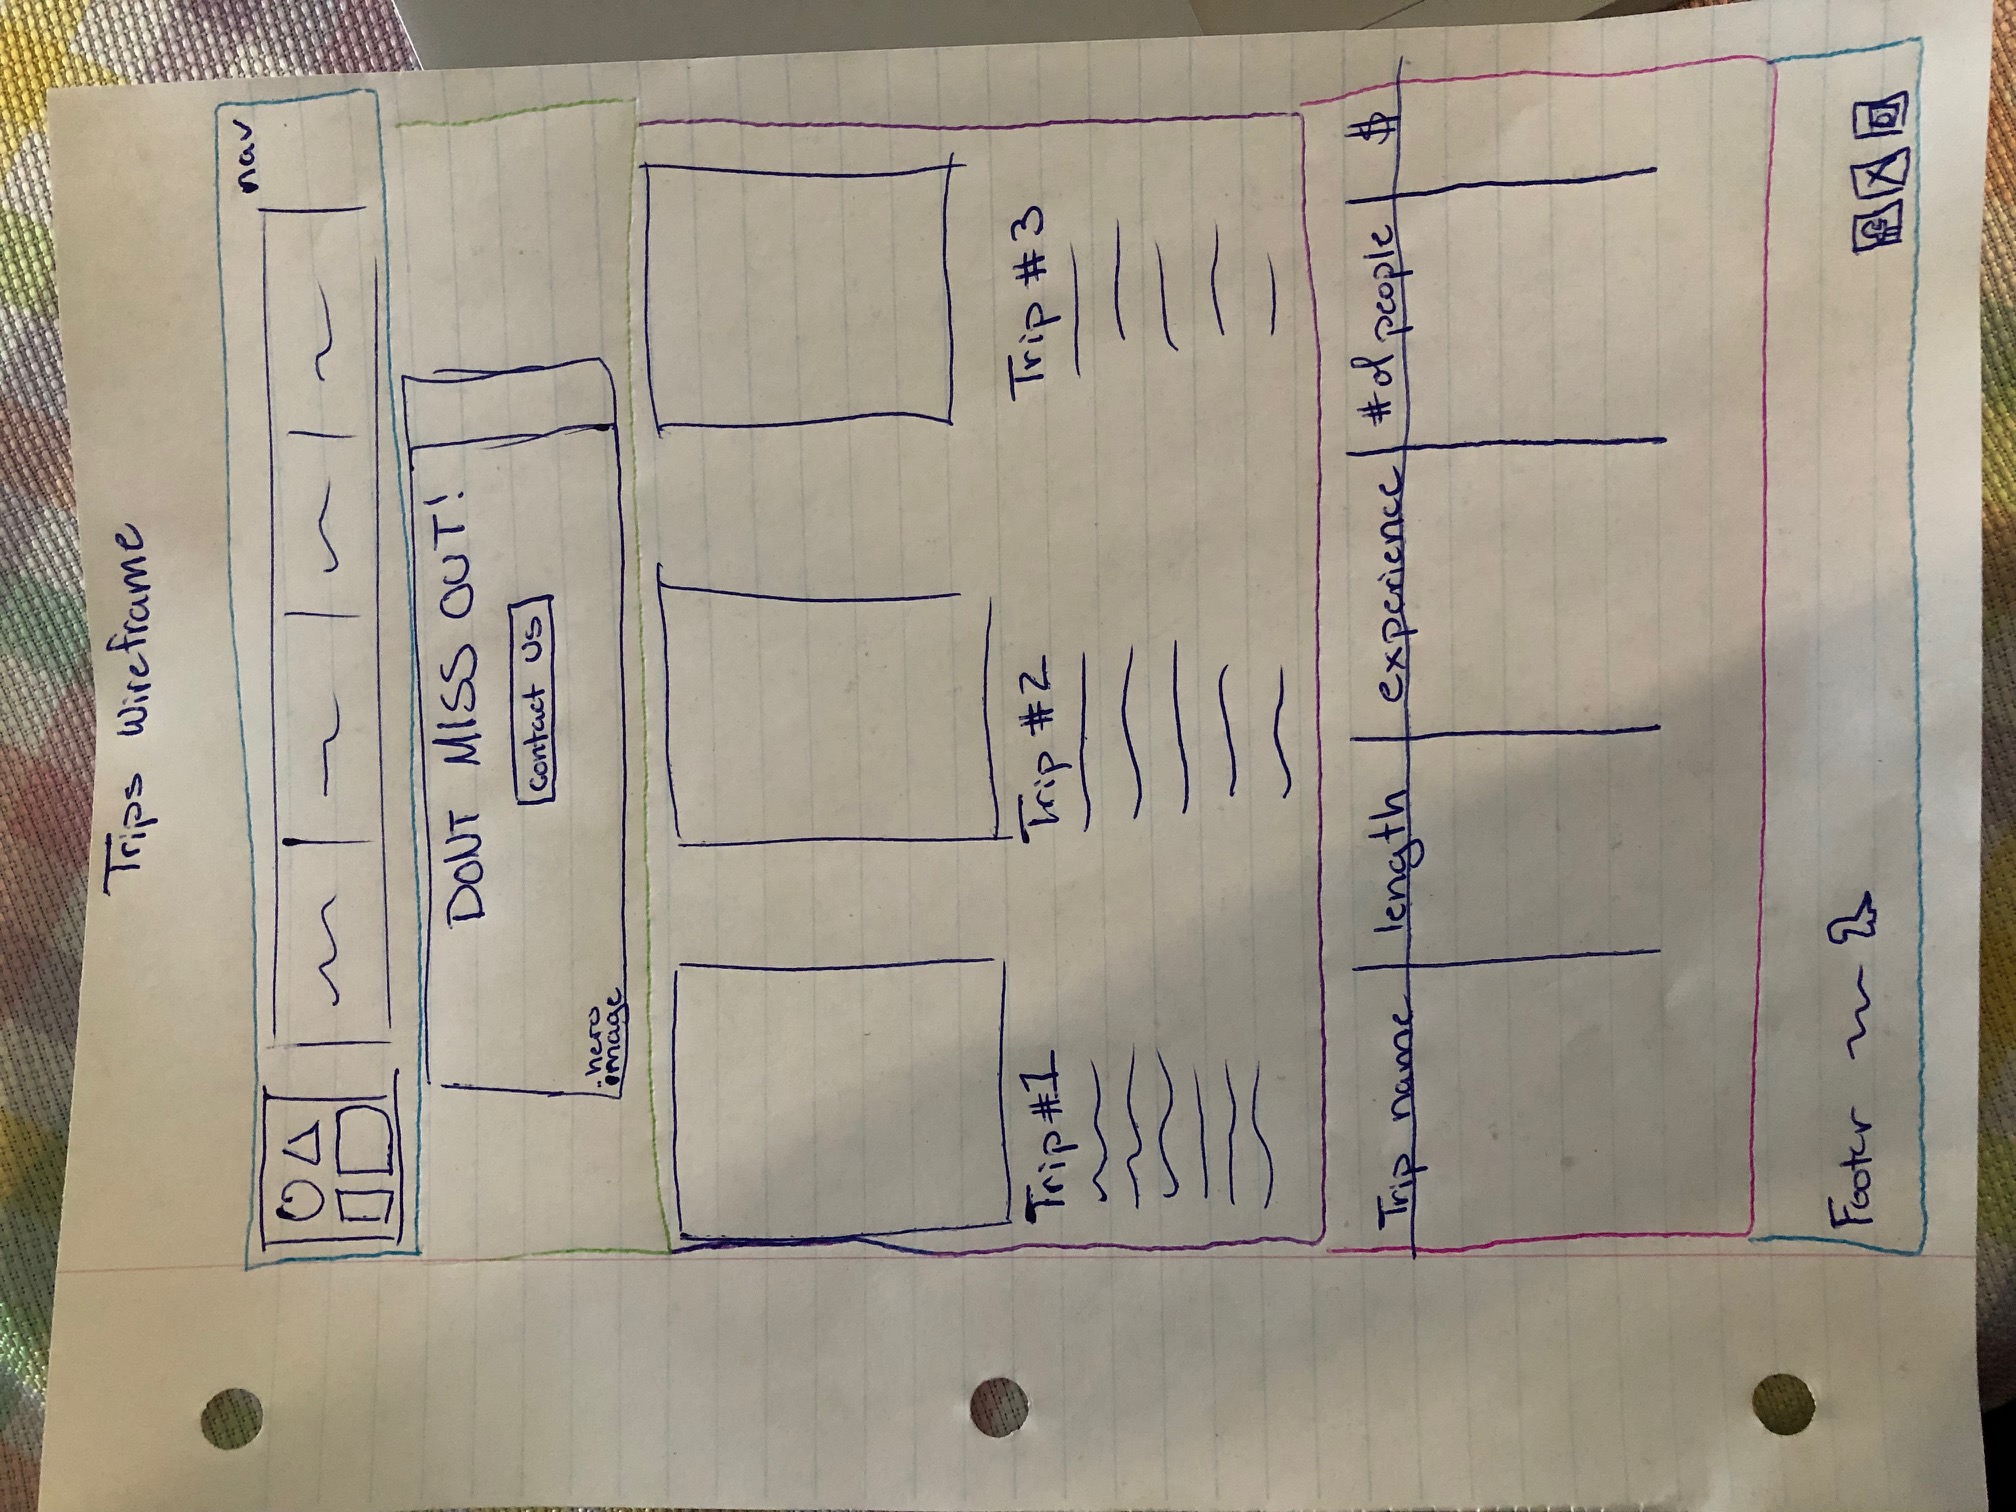 Trips Wireframe
nav
DONT MISS OUT!
Contact Us
.hero
image
Trip #1
Trip #2
Trip #3
Trip name length experience # of people $
Footer
f X